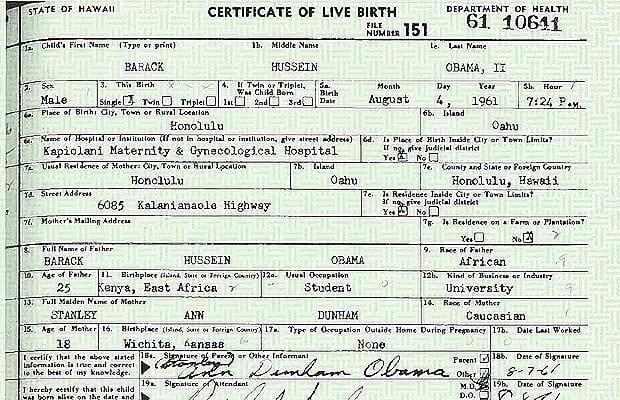 STATE OF HAWAII CERTIFICATE OF LIVE BIRTH DEPARTMENT OF HEALTH
FILE NUMBER 151 61 10641
1a. Child's First Name (Type or print) 1b. Middle Name 1c. Last Name
BARACK HUSSEIN OBAMA, II
2. Sex 3. This Birth 4. If Twin or Triplet, Was Child Born 5a. Birth Date Month Day Year 5b. Hour
Male Single X Twin Triplet 1st 2nd 3rd August 4, 1961 7:24 P.M.
6a. Place of Birth: City, Town or Rural Location 6b. Island
Honolulu Oahu
6c. Name of Hospital or Institution (If not in hospital or institution, give street address) 6d. Is Place of Birth Inside City or Town Limits? If no, give judicial district
Kapiolani Maternity & Gynecological Hospital Yes X No
7a. Usual Residence of Mother: City, Town or Rural Location 7b. Island 7c. County and State or Foreign Country
Honolulu Oahu Honolulu, Hawaii
7d. Street Address 7e. Is Residence Inside City or Town Limits? If no, give judicial district
6085 Kalanianaole Highway Yes X No
7f. Mother's Mailing Address 7g. Is Residence on a Farm or Plantation?
Yes No X
8. Full Name of Father 9. Race of Father
BARACK HUSSEIN OBAMA African
10. Age of Father 11. Birthplace (Island, State or Foreign Country) 12a. Usual Occupation 12b. Kind of Business or Industry
25 Kenya, East Africa Student University
13. Full Maiden Name of Mother 14. Race of Mother
STANLEY ANN DUNHAM Caucasian
15. Age of Mother 16. Birthplace (Island, State or Foreign Country) 17a. Type of Occupation Outside Home During Pregnancy 17b. Date Last Worked
18 Wichita, Kansas None
I certify that the above stated information is true and correct to the best of my knowledge. 18a. Signature of Parent or Other Informant Parent Other 18b. Date of Signature
(Stanley) Ann Dunham Obama 8-7-61
I hereby certify that this child was born alive on the date and 19a. Signature of Attendant M.D. D.O. 19b. Date of Signature